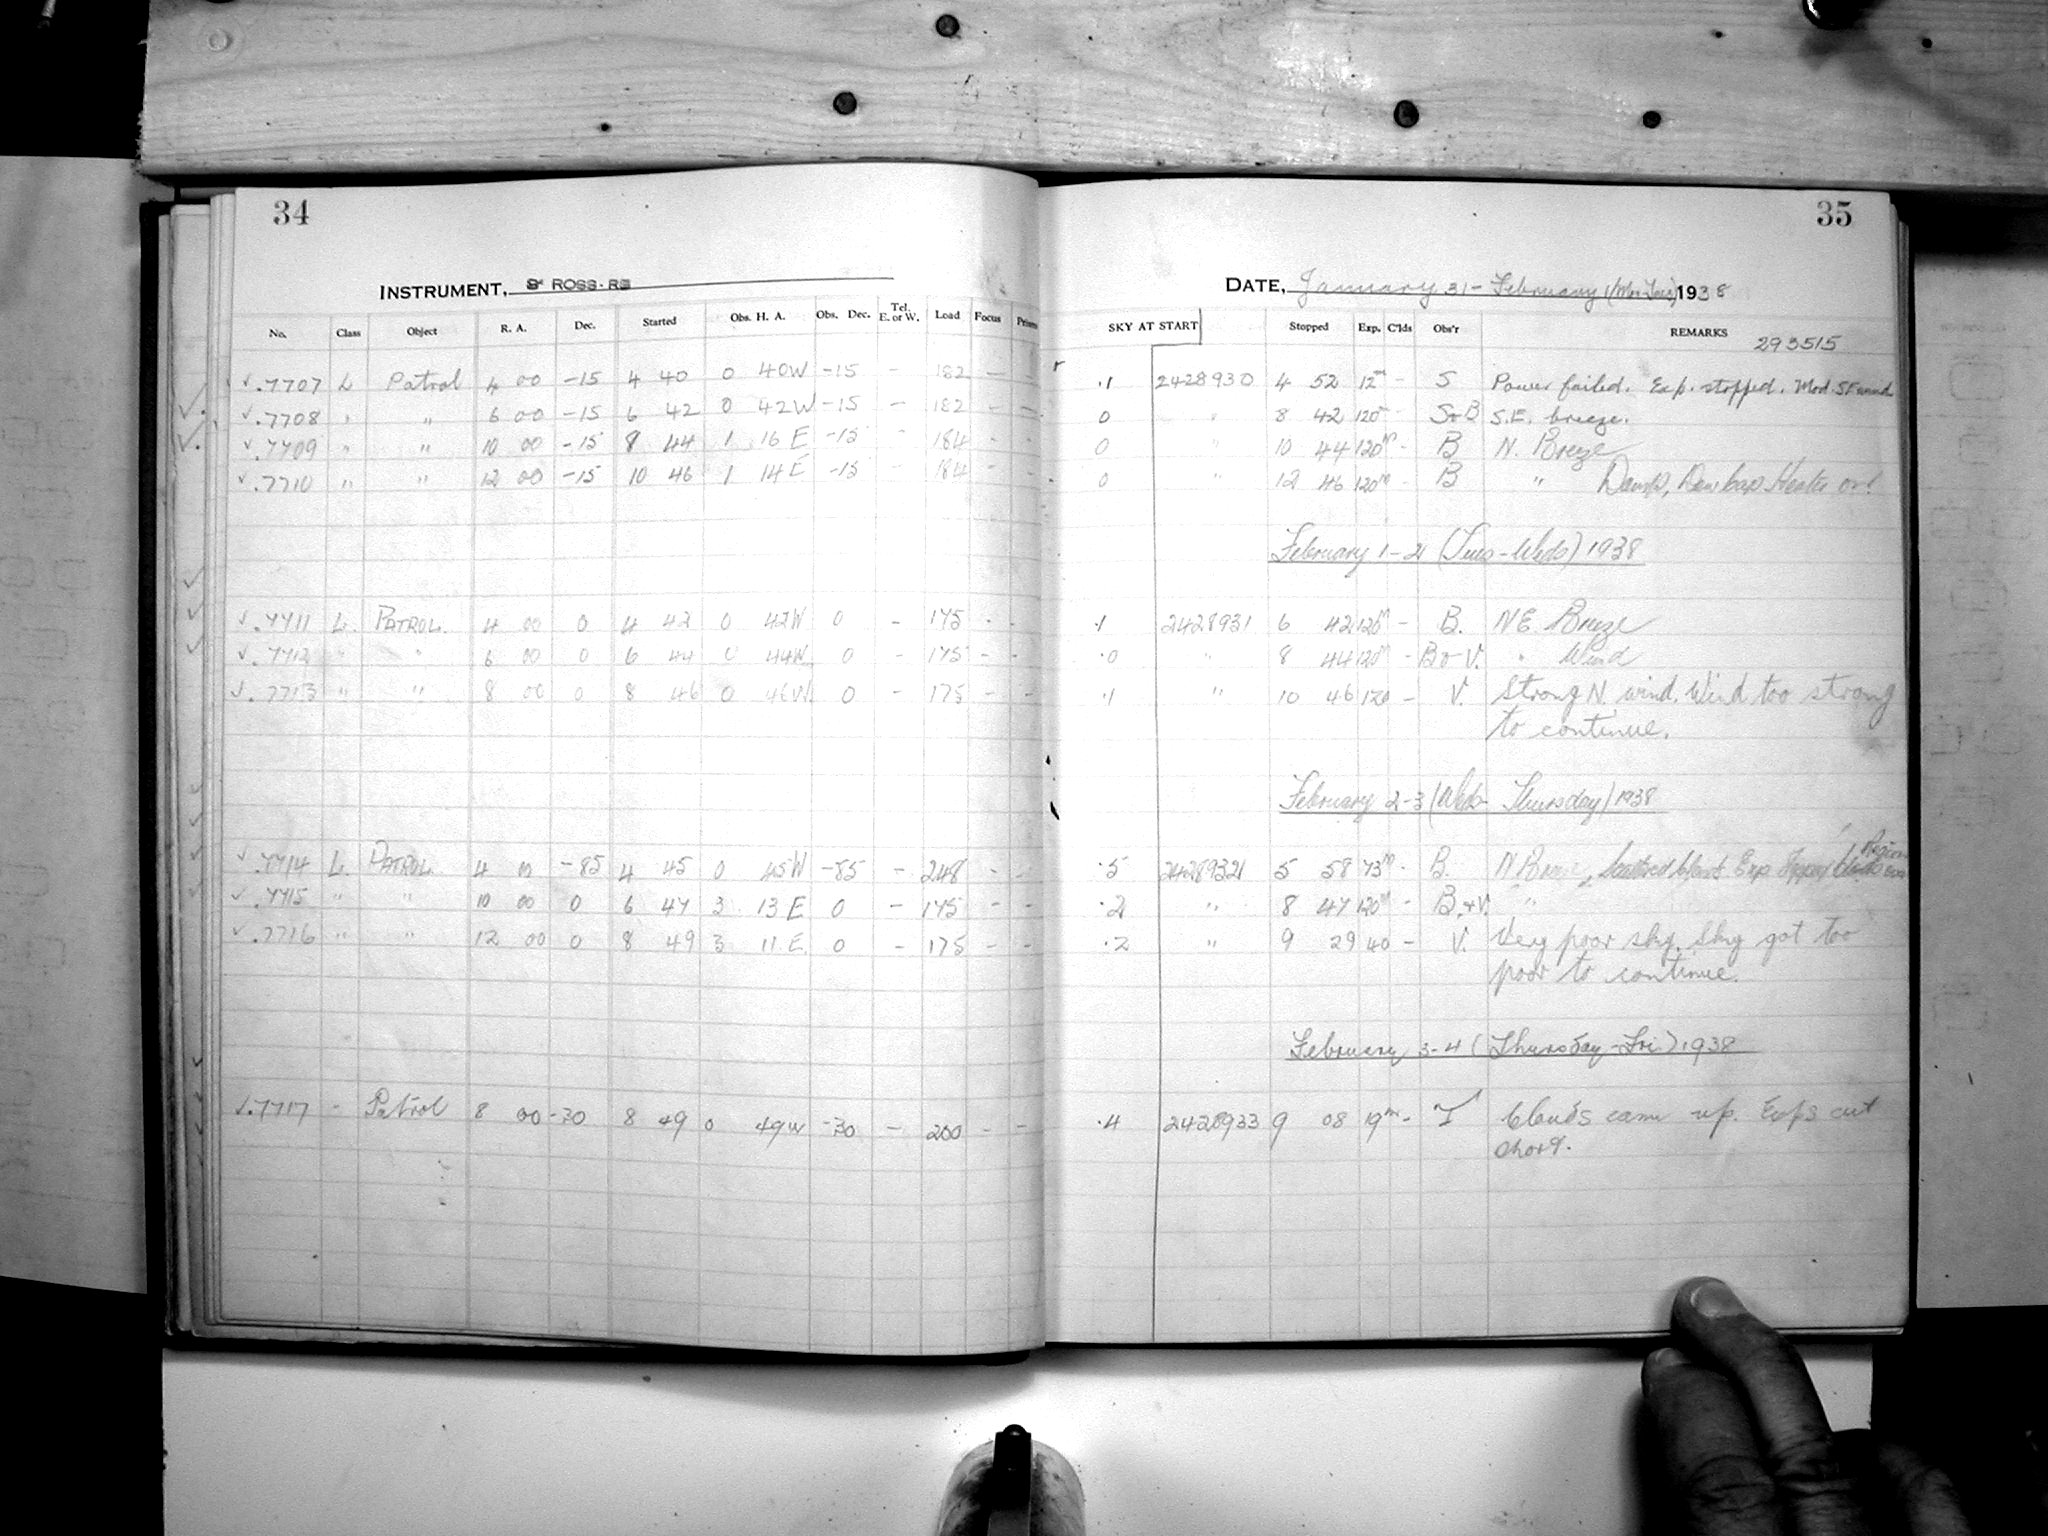 34
INSTRUMENT, 3" ROSS-RB
No. Class Object R. A. Dec. Started Obs. H. A. Obs. Dec. Tel. E. or W. Load Focus
.7707 L Patrol 4 00 -15 4 40 0 40W -15 - 182 - -
.7708 " " 6 00 -15 6 42 0 42W -15 - 182 - -
.7709 " " 10 00 -15 8 44 1 16 E -15 - 184 - -
.7710 " " 12 00 -15 10 46 1 14 E -15 - 184 - -
.7711 L. PATROL. 4 00 0 4 42 0 42W 0 - 175 - -
.7712 " " 6 00 0 6 44 0 44W 0 - 175 - -
.7713 " " 8 00 0 8 46 0 46W. 0 - 175 - -
.7714 L. PATROL. 4 00 -85 4 45 0 45W -85 - 248 - -
.7715 " " 10 00 0 6 47 3 13 E 0 - 175 - -
.7716 " " 12 00 0 8 49 3 11 E. 0 - 175 - -
.7717 - Patrol 8 00 -30 8 49 0 49W -30 - 200 - -
35
DATE, January 31 - February 1 (Mon-Tues) 1938
SKY AT START Stopped Exp. C'lds Obs'r REMARKS 293515
.1 2428930 4 52 12m - S Power failed. Exp. stopped. Mod. SE wind
0 " 8 42 120m - S+B S.E. breeze.
0 " 10 44 120m - B N. Breeze
0 " 12 46 120m - B " Damp, Dewcap Heater on!
February 1-2 (Tues-Weds) 1938
.1 2428931 6 42 120m - B. NE. Breeze
.0 " 8 44 120m - B+V. " Wind
.1 " 10 46 120 - V. Strong N. wind. Wind too strong
to continue.
February 2-3 (Weds- Thursday) 1938
.5 2428932 5 58 73m - B. N Breeze, Scattered clouds Exp. Region
.2 " 8 47 120m - B.+V. "
.2 " 9 29 40 - V. Very poor sky. Sky got too
poor to continue.
February 3-4 (Thursday-Fri.) 1938
.4 2428933 9 08 19m - T Clouds came up. Exps cut
short.